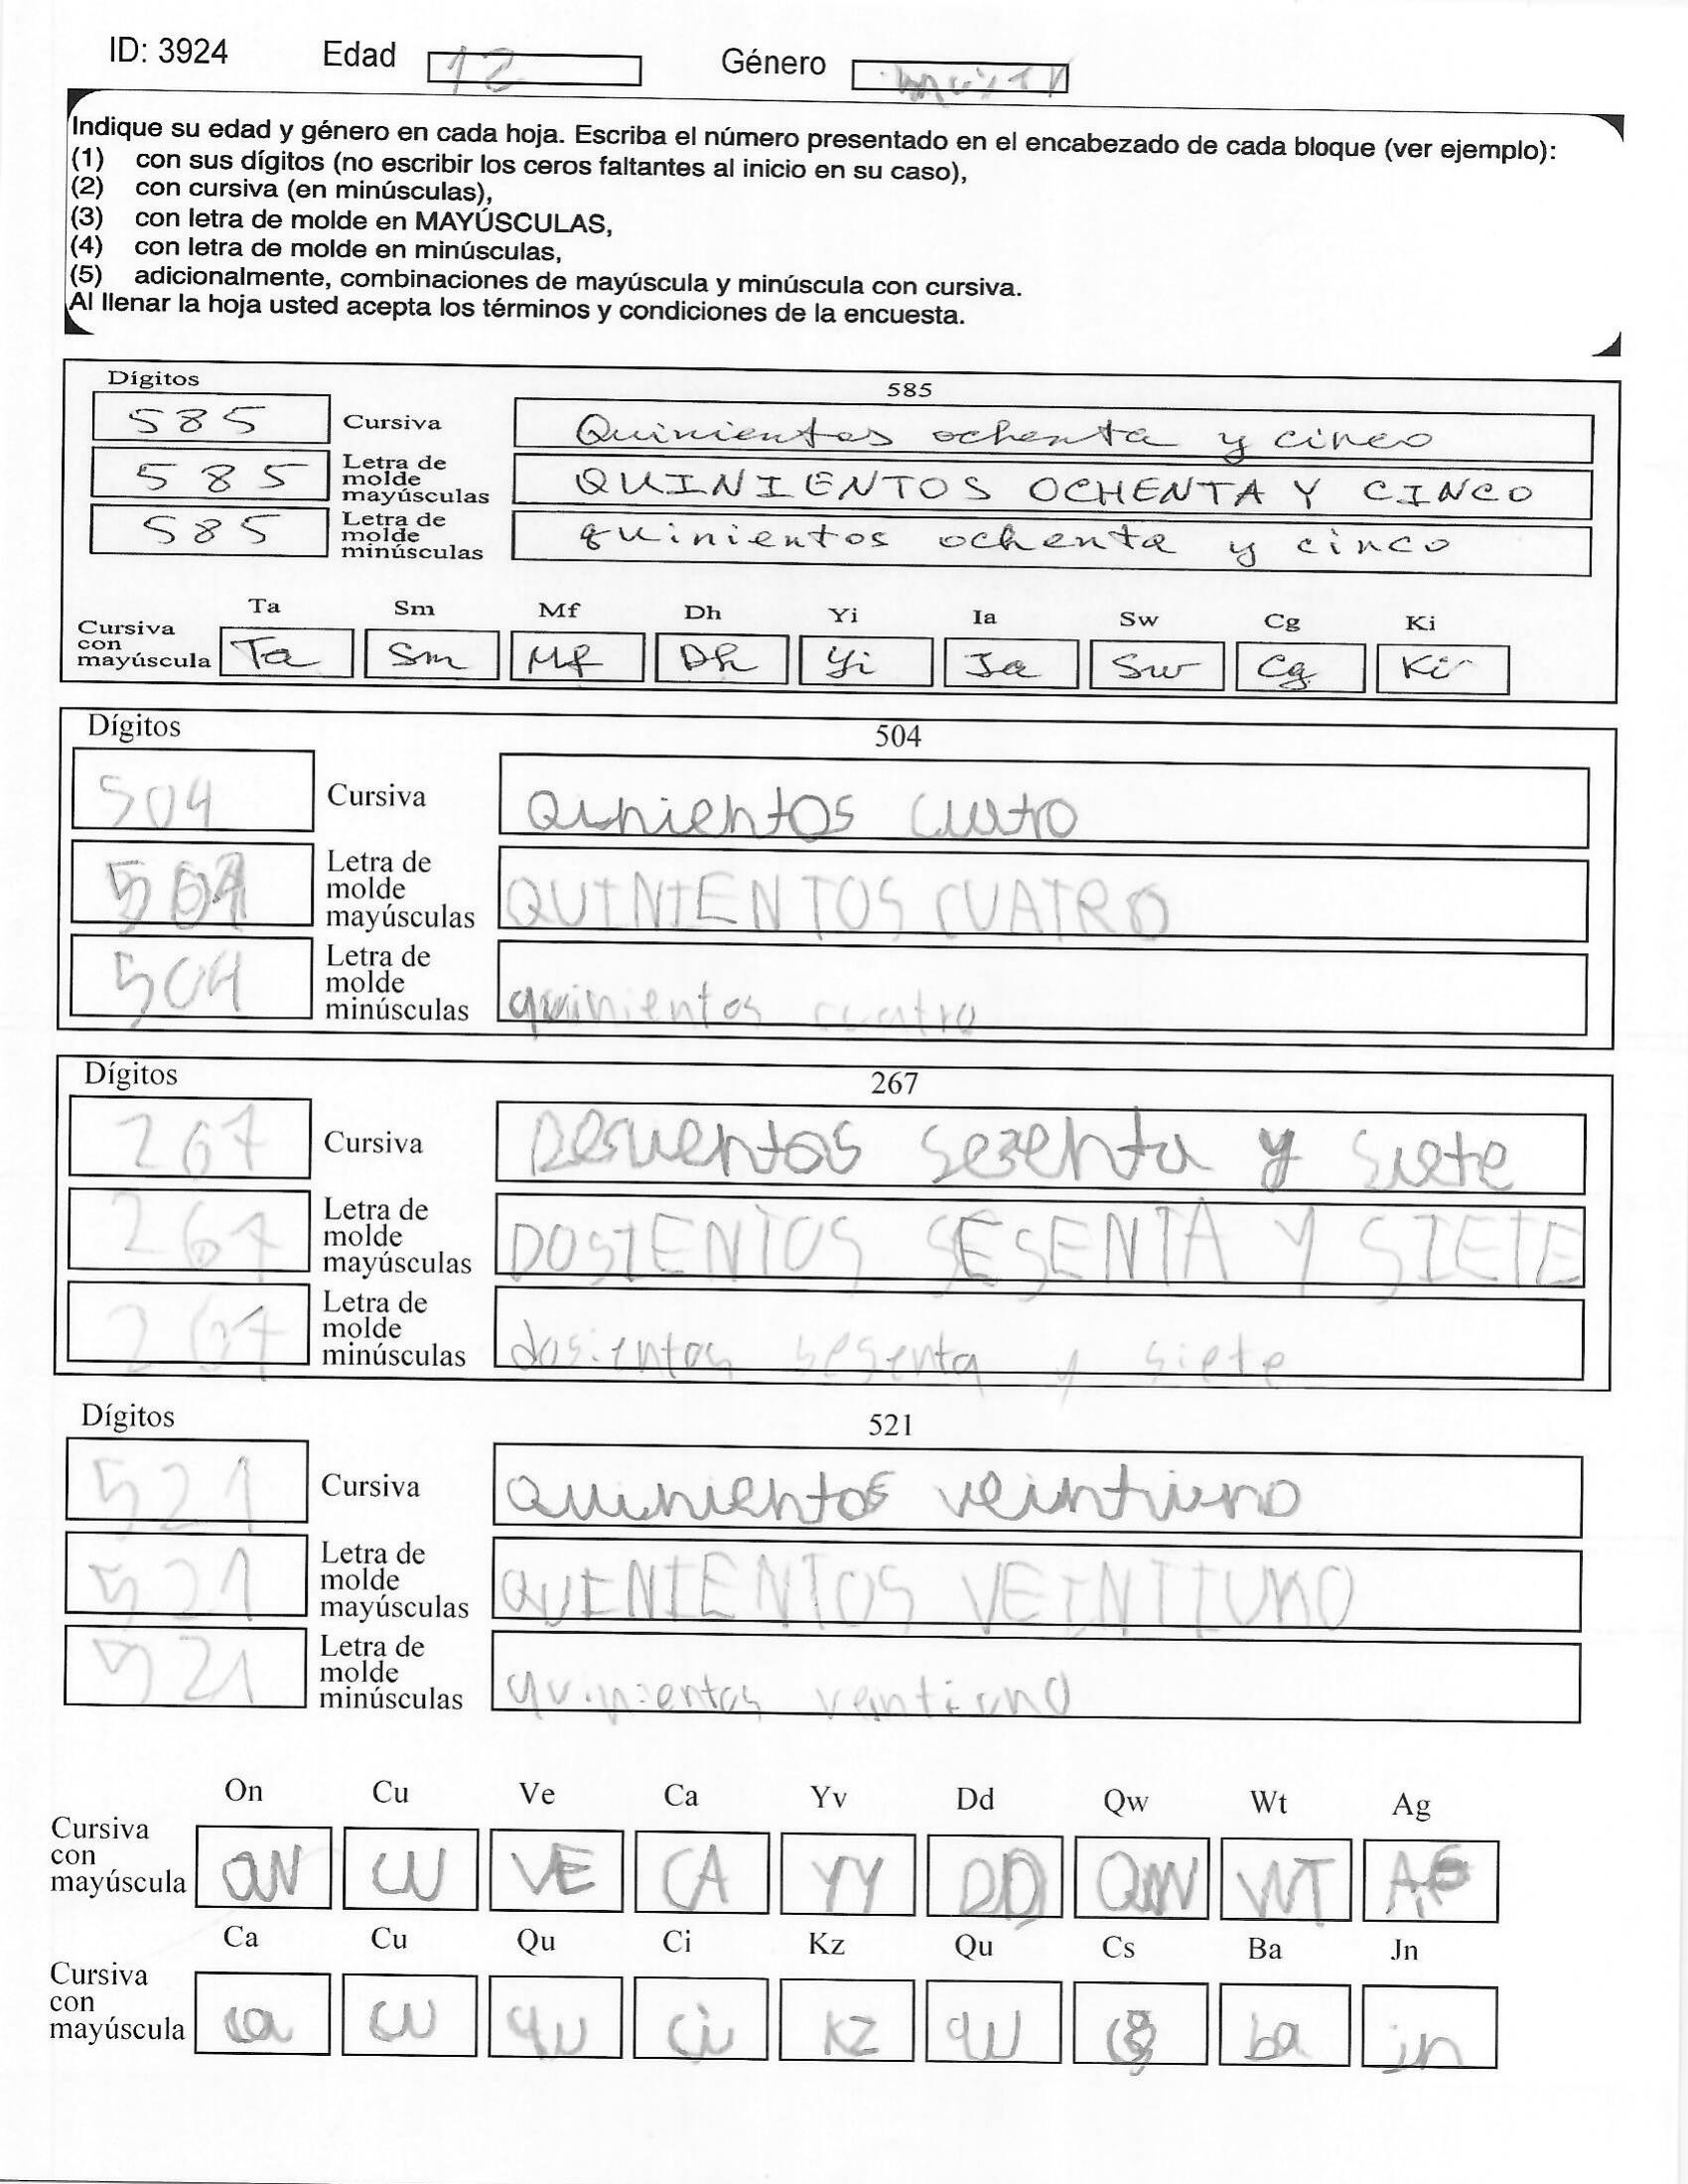 ID: 3924 Edad 12 Género
Indique su edad y género en cada hoja. Escriba el número presentado en el encabezado de cada bloque (ver ejemplo):
(1) con sus dígitos (no escribir los ceros faltantes al inicio en su caso),
(2) con cursiva (en minúsculas),
(3) con letra de molde en MAYÚSCULAS,
(4) con letra de molde en minúsculas,
(5) adicionalmente, combinaciones de mayúscula y minúscula con cursiva.
Al llenar la hoja usted acepta los términos y condiciones de la encuesta.
Dígitos 585
585 Cursiva Quinientos ochenta y cinco
585 Letra de molde mayúsculas QUINIENTOS OCHENTA Y CINCO
585 Letra de molde minúsculas quinientos ochenta y cinco
Ta Sm Mf Dh Yi Ia Sw Cg Ki
Cursiva con mayúscula Ta Sm Mf Dh Yi Ia Sw Cg Ki
Dígitos 504
504 Cursiva Qunientos cuatro
504 Letra de molde mayúsculas QUINIENTOS CUATRO
504 Letra de molde minúsculas quinientos cuatro
Dígitos 267
267 Cursiva sesenta y siete
267 Letra de molde mayúsculas DOSIENTOS SESENTA Y SIETE
267 Letra de molde minúsculas dosientos sesenta y siete
Dígitos 521
521 Cursiva Quinientos veintiuno
521 Letra de molde mayúsculas QUINIENTOS VEINTIUNO
521 Letra de molde minúsculas quinientos veintiuno
On Cu Ve Ca Yv Dd Qw Wt Ag
Cursiva con mayúscula ON CU VE CA YY DD QW WT AG
Ca Cu Qu Ci Kz Qu Cs Ba Jn
Cursiva con mayúscula ca cu qu ci KZ qu ba jn